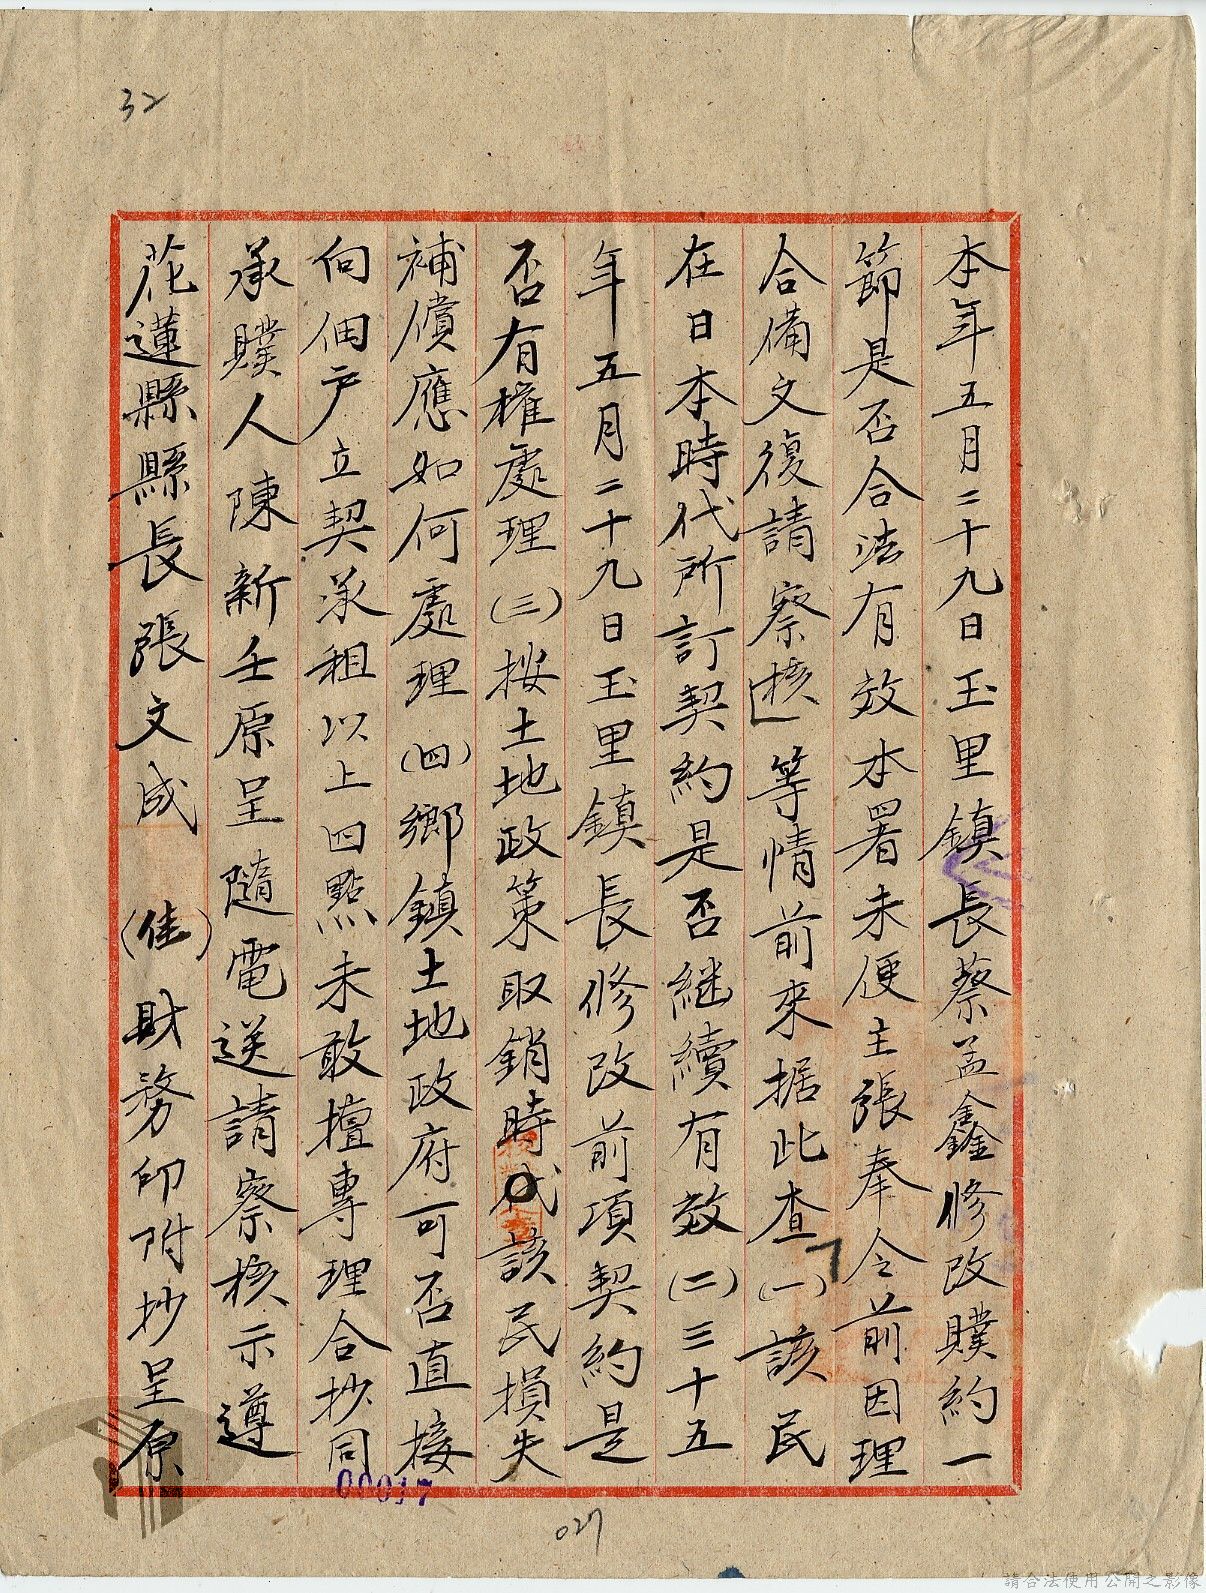 32
本年五月二十九日玉里鎮長蔡孟鑫修改贌約一
節是否合法有效本署未便主張奉令前因理
合備文復請察核」等情前來据此查(一)該民
在日本時代所訂契約是否継續有效(二)三十五
年五月二十九日玉里鎮長修改前項契約是
否有權處理(三)按土地政策取銷時代該民損失
補償應如何處理(四)鄉鎮土地政府可否直接
向佃户立契承租以上四點未敢擅專理合抄同
承贌人陳新壬原呈隨電送請察核示遵
花蓮縣縣長張文成(佳)財務印附抄呈原
00017
027
請合法使用公開之影像